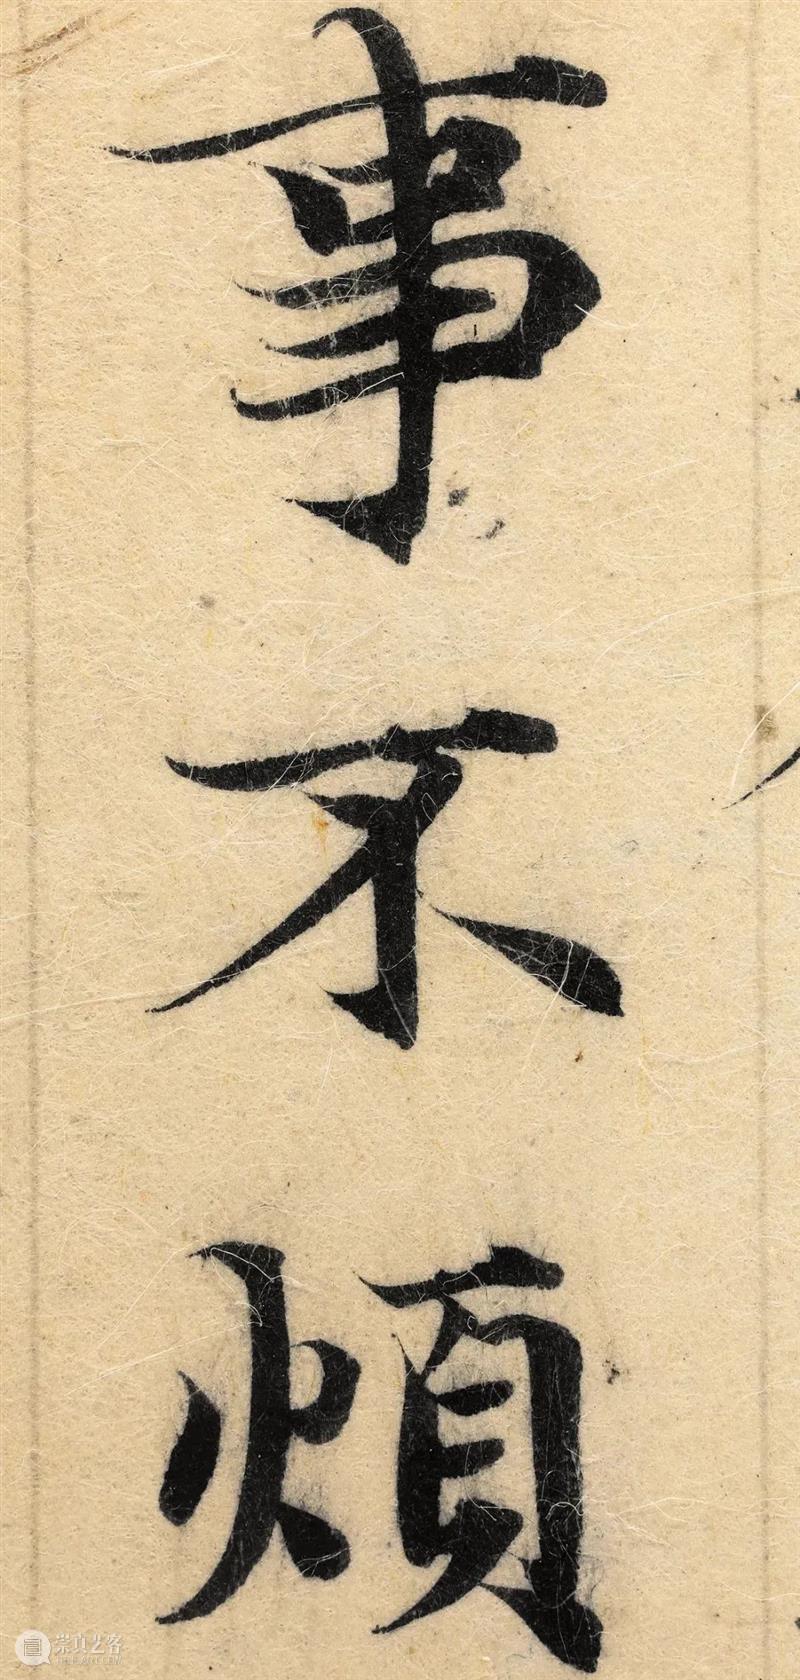 事不煩
崇真艺客